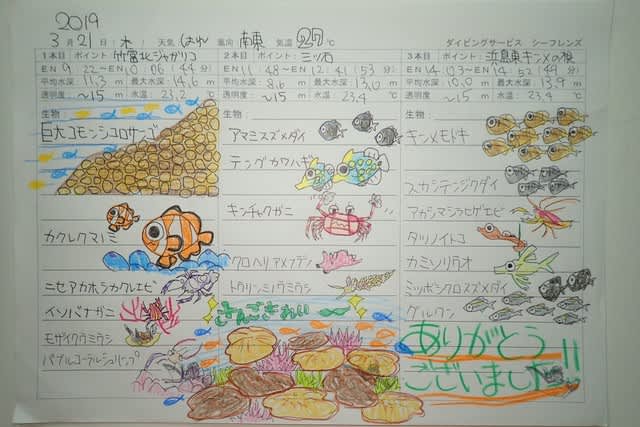 2019
3月21日（木） 天気 はれ 風向 南東 気温 27℃
ダイビングサービス シーフレンズ
1本目 ポイント：竹富北ジャガリコ
EN 9:22～EN 10:06（44分）
平均水深 11.3 m 最大水深 14.6 m
透明度 ～15 m 水温 23.2℃
生物：
巨大コモンシコロサンゴ
カクレクマノミ
ニセアカホシカクレエビ
イソバナガニ
モザイクウミウシ
バブルコーラルシュリンプ
2本目 ポイント：三ツ石
EN 11:48～EN 12:41（53分）
平均水深 8.6 m 最大水深 13.0 m
透明度 ～15 m 水温 23.4℃
生物：
アマミスズメダイ
テングカワハギ
キンチャクガニ
クロヘリアメフラシ
トウリンミノウミウシ
さんごきれい
3本目 ポイント：浜島東キンメの根
EN 14:03～EN 14:52（49分）
平均水深 10.0 m 最大水深 13.9 m
透明度 ～15 m 水温 23.4℃
生物：
キンメモドキ
スカシテンジクダイ
アカシマシラヒゲエビ
タツノイトコ
カミソリウオ
ミツボシクロスズメダイ
グルクン
ありがとう
ございました!!